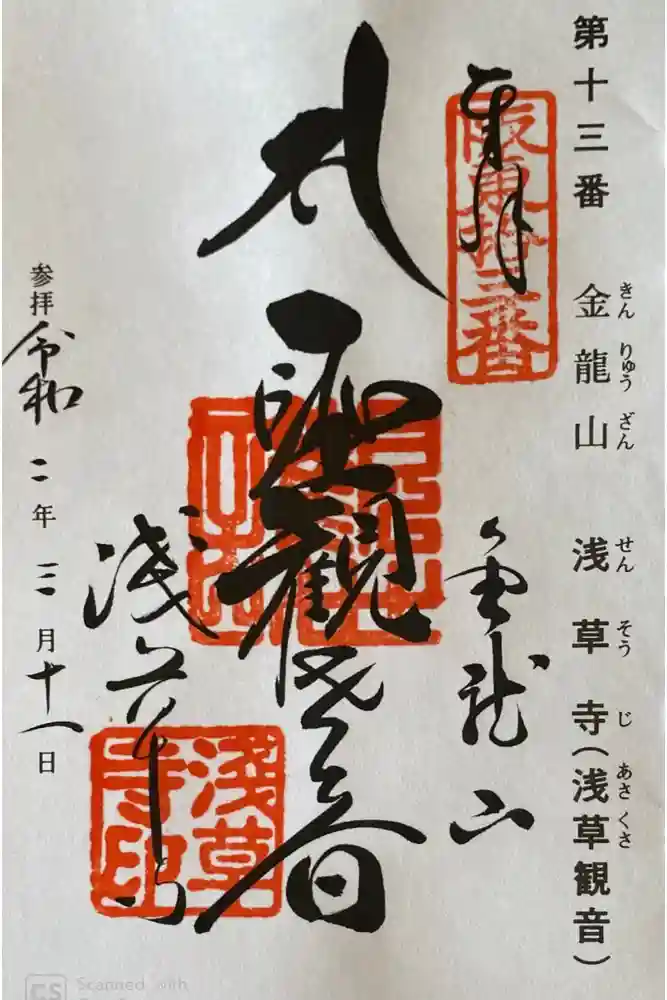 第十三番 金龍山 浅草寺(浅草観音)
きんりゅうざん せんそうじ あさくさ
奉拝
阪東拾三番
金龍山
聖観世音
浅草寺
浅草寺印
参拝 令和二年三月十一日
CS Scanned with